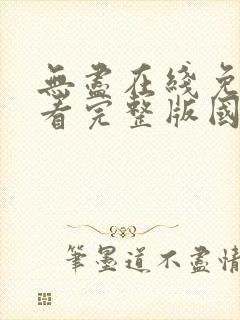 無盡在綫免
看完整版國
筆墨道不盡情